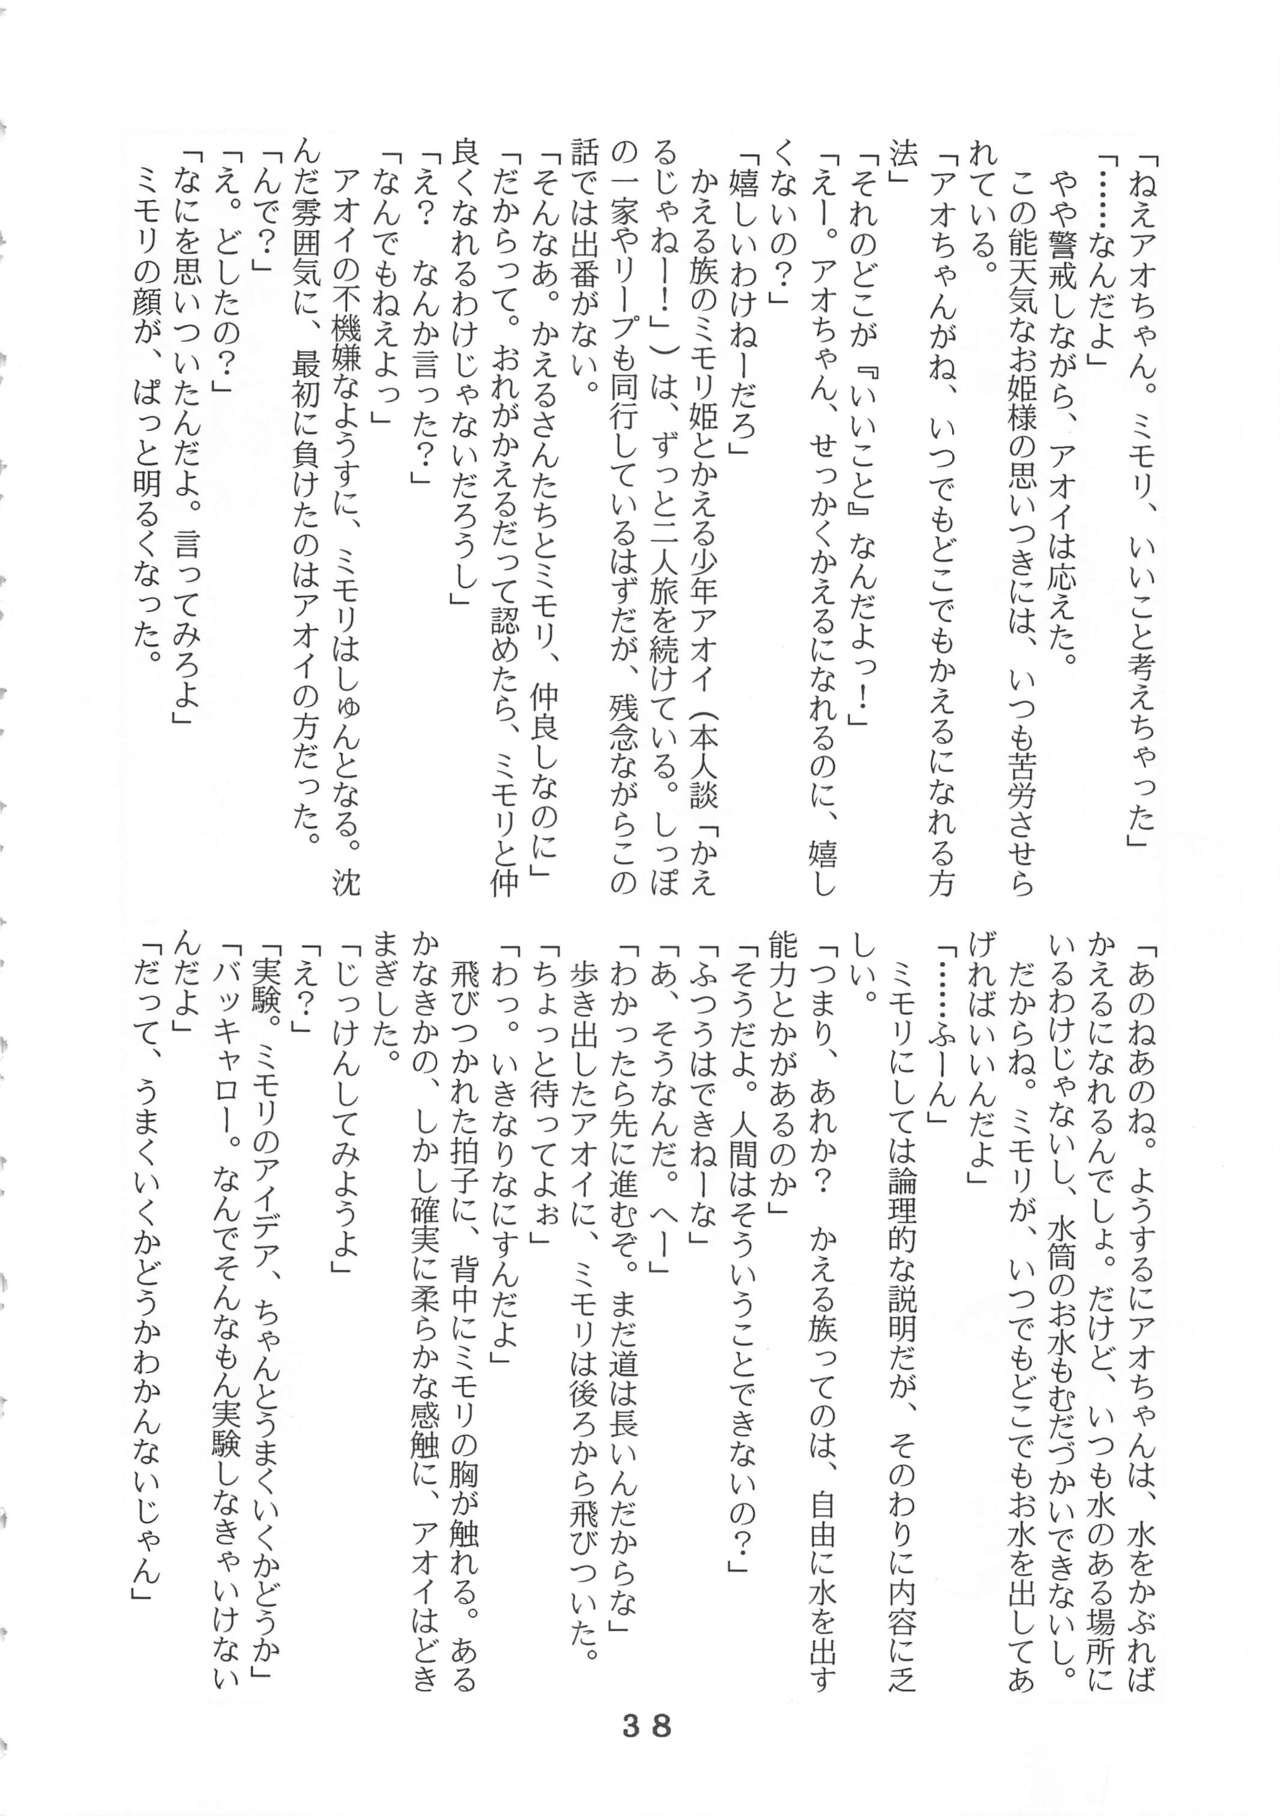 「ねえアオちゃん。ミモリ、いいこと考えちゃった」
「……なんだよ」
　やや警戒しながら、アオイは応えた。
　この能天気なお姫様の思いつきには、いつも苦労させら
れている。
「アオちゃんがね、いつでもどこでもかえるになれる方
法」
「それのどこが『いいこと』なんだよっ！」
「えー。アオちゃん、せっかくかえるになれるのに、嬉し
くないの？」
「嬉しいわけねーだろ」
　かえる族のミモリ姫とかえる少年アオイ（本人談「かえ
るじゃねー！」）は、ずっと二人旅を続けている。しっぽ
の一家やリープも同行しているはずだが、残念ながらこの
話では出番がない。
「そんなあ。かえるさんたちとミモリ、仲良しなのに」
「だからって。おれがかえるだって認めたら、ミモリと仲
良くなれるわけじゃないだろうし」
「え？　なんか言った？」
「なんでもねえよっ」
　アオイの不機嫌なようすに、ミモリはしゅんとなる。沈
んだ雰囲気に、最初に負けたのはアオイの方だった。
「んで？」
「え。どしたの？」
「なにを思いついたんだよ。言ってみろよ」
　ミモリの顔が、ぱっと明るくなった。
「あのねあのね。ようするにアオちゃんは、水をかぶれば
かえるになれるんでしょ。だけど、いつも水のある場所に
いるわけじゃないし、水筒のお水もむだづかいできないし。
　だからね。ミモリが、いつでもどこでもお水を出してあ
げればいいんだよ」
「……ふーん」
　ミモリにしては論理的な説明だが、そのわりに内容に乏
しい。
「つまり、あれか？　かえる族ってのは、自由に水を出す
能力とかがあるのか」
「そうだよ。人間はそういうことできないの？」
「ふつうはできねーな」
「あ、そうなんだ。へー」
「わかったら先に進むぞ。まだ道は長いんだからな」
　歩き出したアオイに、ミモリは後ろから飛びついた。
「ちょっと待ってよぉ」
「わっ。いきなりなにすんだよ」
　飛びつかれた拍子に、背中にミモリの胸が触れる。ある
かなきかの、しかし確実に柔らかな感触に、アオイはどき
まぎした。
「じっけんしてみようよ」
「え？」
「実験。ミモリのアイデア、ちゃんとうまくいくかどうか」
「バッキャロー。なんでそんなもん実験しなきゃいけない
んだよ」
「だって、うまくいくかどうかわかんないじゃん」
38